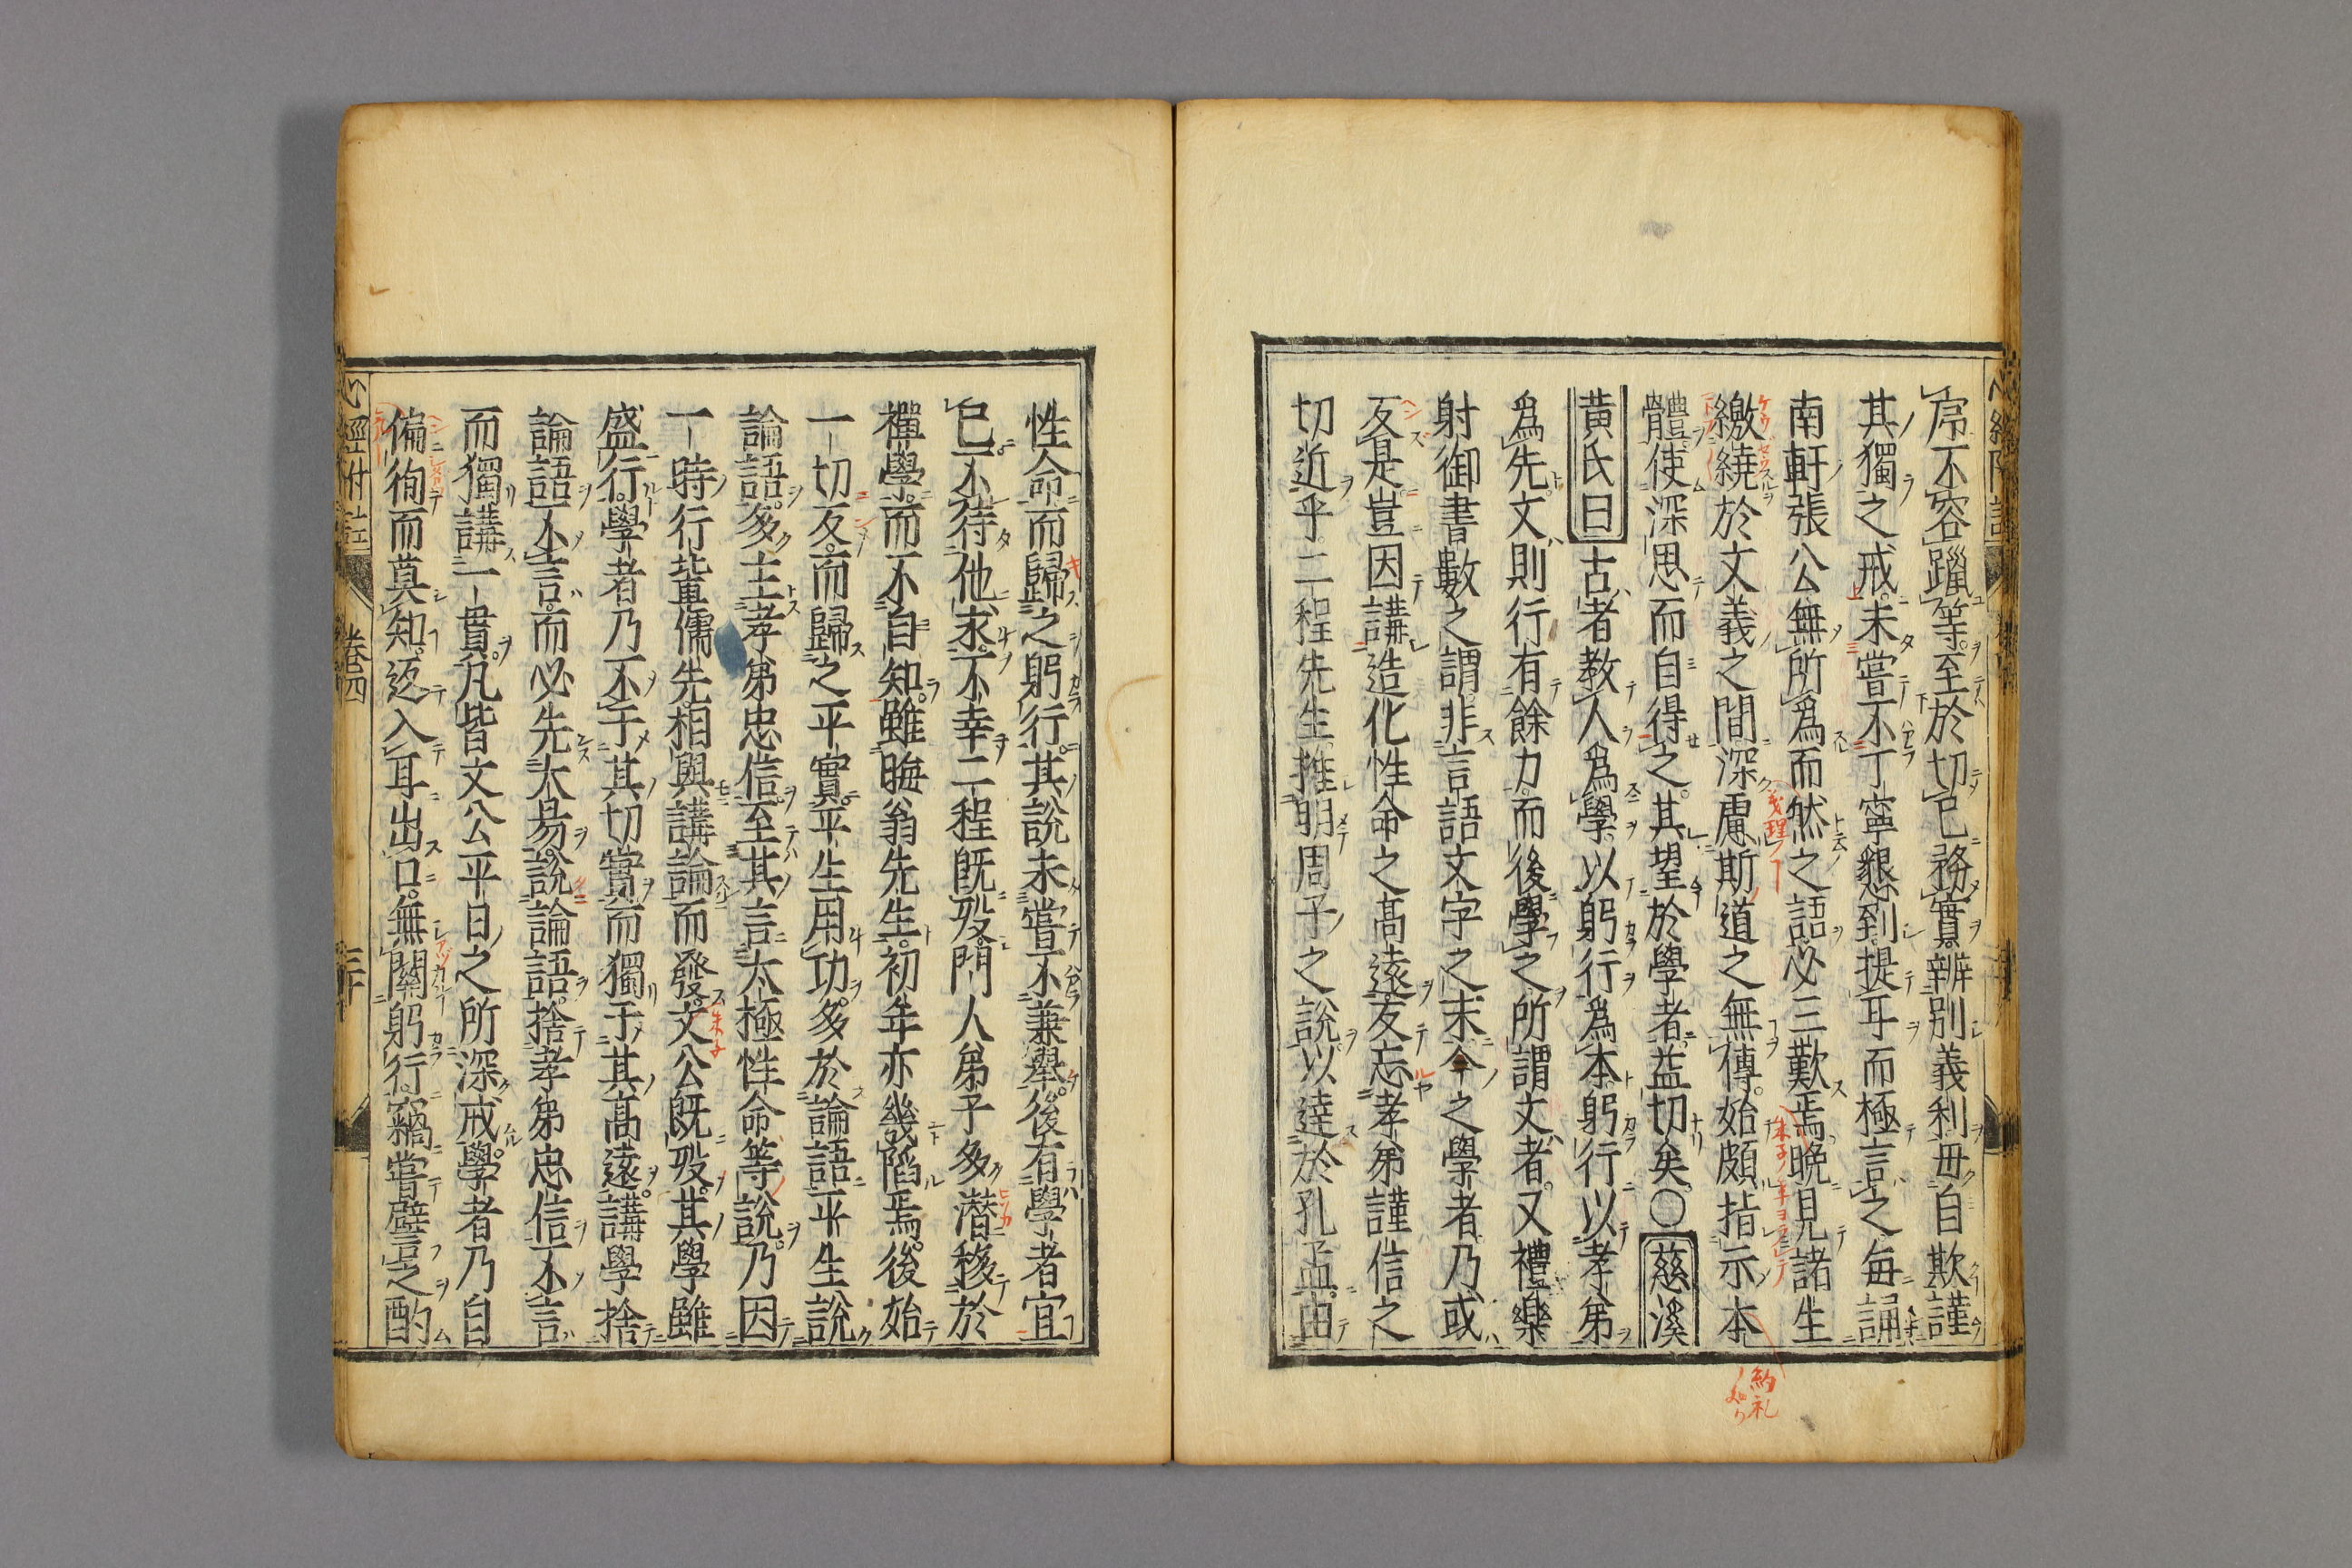 序不容躐等至於切己務實辨別義利毋自欺謹
其獨之戒未嘗不丁寧懇到提耳而極言之每誦
南軒張公無所爲而然之語必三歎焉晩見諸生
繳繞於文義之間深慮斯道之無傳始頗指示本
體使深思而自得之其望於學者益切矣〇慈溪
黃氏曰古者教人爲學以躬行爲本躬行以孝弟
爲先文則行有餘力而後學之所謂文者又禮樂
射御書數之謂非言語文字之末今之學者乃或
反是豈因講造化性命之高遠反忘孝弟謹信之
切近乎二程先生推明周子之說以達於孔孟由
性命而歸之躬行其說未嘗不兼舉後有學者宜
已不待他求不幸二程旣歿門人弟子多潛移於
禪學而不自知雖晦翁先生初年亦幾陷焉後始
一切反而歸之平實平生用功多於論語平生說
論語多主孝弟忠信至其言太極性命等說乃因
一時行輩儒先相與講論而發文公旣歿其學雖
盛行學者乃不于其切實而獨于其高遠講學捨
論語不言而必先大易說論語捨孝弟忠信不言
而獨講一貫凡皆文公平日之所深戒學者乃自
偏徇而莫知返入耳出口無關躬行竊嘗譬之酌
心經附註
卷四
三十